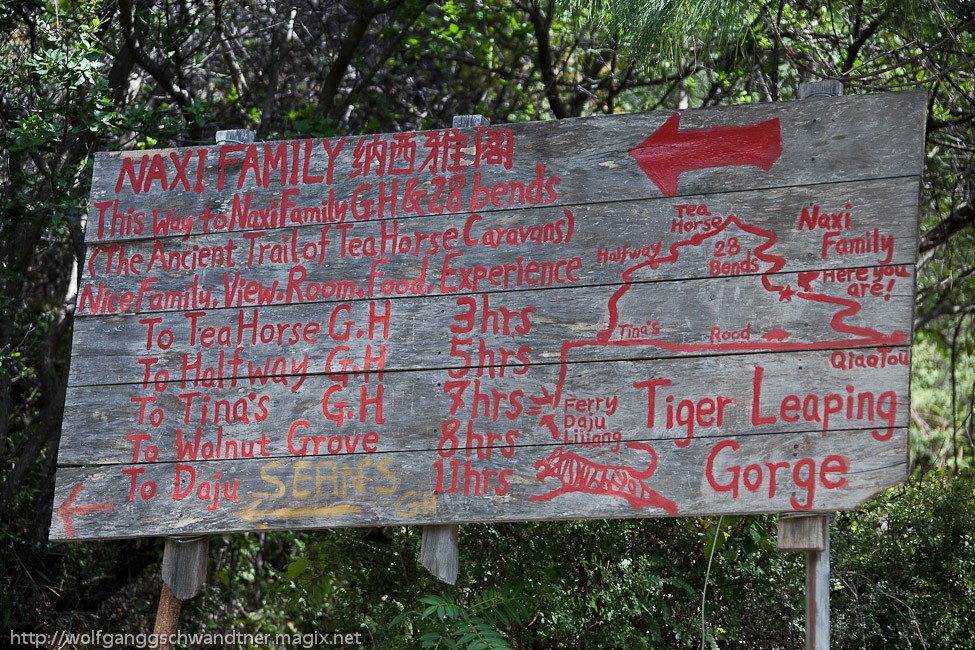 NAXI FAMILY 纳西雅阁
This Way to Naxi Family G.H & 28 bends
(The Ancient Trail of Tea Horse Caravans)
Nice Family. View. Room. Food. Experience
To Tea Horse G.H 3hrs
To Halfway G.H 5hrs
To Tina's G.H 7hrs
To Walnut Grove 8hrs
To Daju 11hrs
SEAN'S
GH
Tea
Horse
Halfway
28
Bends
Naxi
Family
Here you
are!
Tina's
Rood
QiaoTou
Ferry
Daju
Lijiang
Tiger Leaping
Gorge
http://wolfganggschwandtner.magix.net